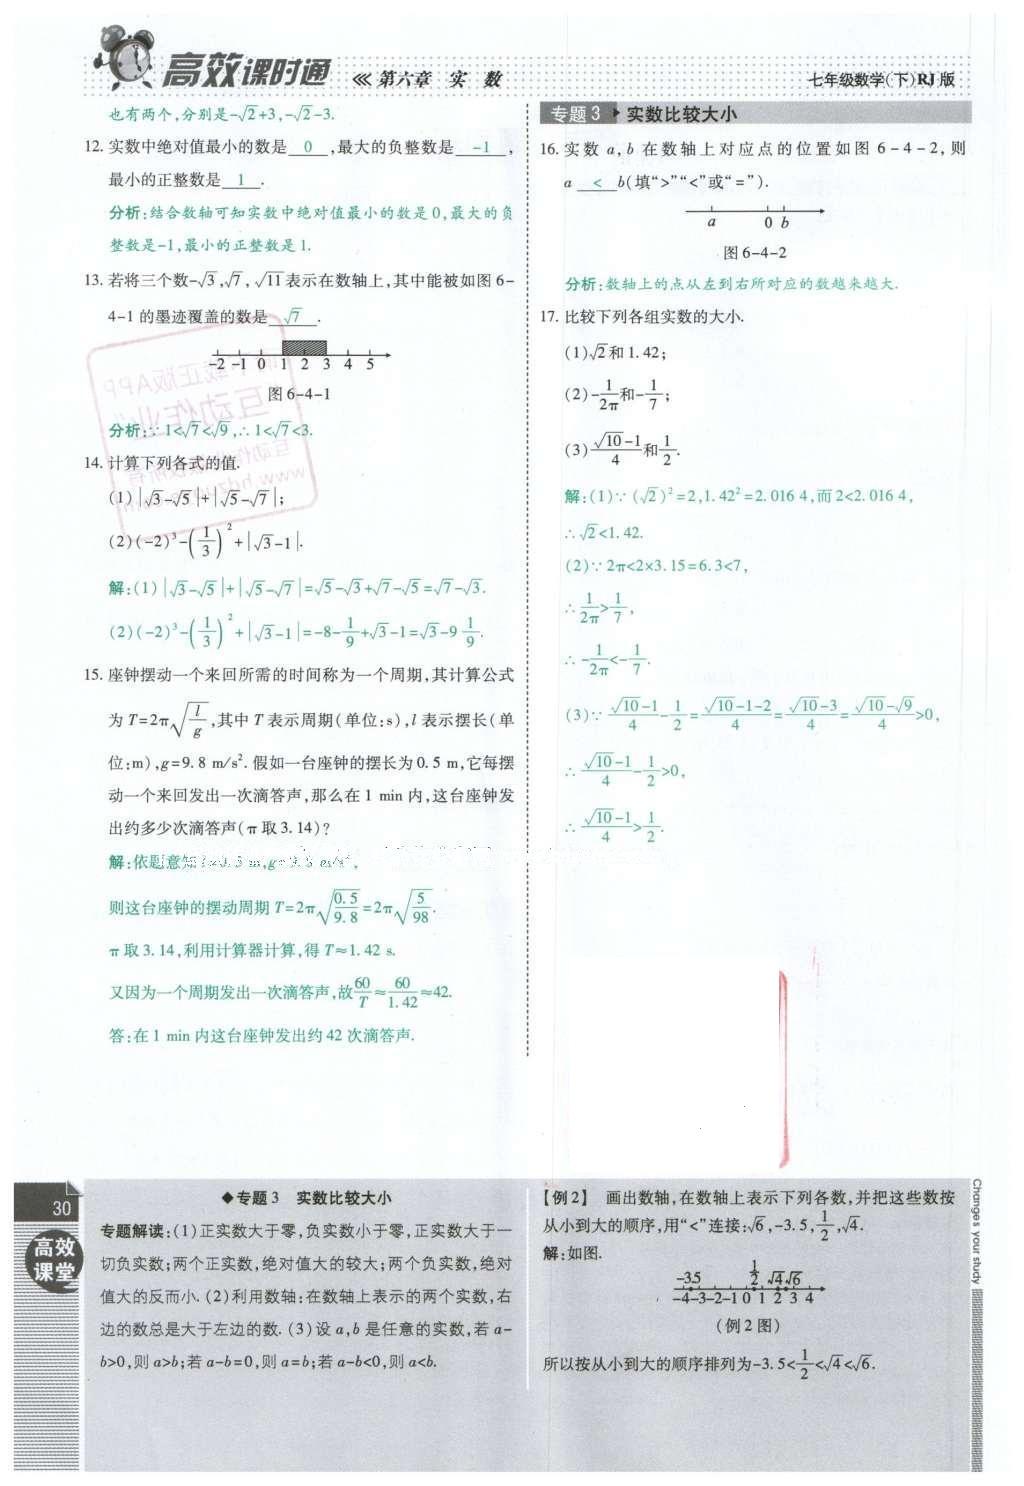 高效课时通 《 第六章 实 数
七年级数学(下)RJ版
也有两个,分别是-√2+3,-√2-3.
12. 实数中绝对值最小的数是 0 ,最大的负整数是 -1 ,
最小的正整数是 1 .
分析:结合数轴可知实数中绝对值最小的数是0,最大的负
整数是-1,最小的正整数是1.
13. 若将三个数-√3,√7,√11表示在数轴上,其中能被如图6-
4-1的墨迹覆盖的数是 √7 .
-2 -1 0 1 2 3 4 5
图6-4-1
分析:∵1<√7<√9,∴1<√7<3.
14. 计算下列各式的值.
(1)|√3-√5|+|√5-√7|;
(2)(-2)³-(1/3)²+|√3-1|.
解:(1)|√3-√5|+|√5-√7|=√5-√3+√7-√5=√7-√3.
(2)(-2)³-(1/3)²+|√3-1|=-8-1/9+√3-1=√3-9 1/9.
15. 座钟摆动一个来回所需的时间称为一个周期,其计算公式
为T=2π√(l/g),其中T表示周期(单位:s),l表示摆长(单
位:m),g=9.8 m/s².假如一台座钟的摆长为0.5 m,它每摆
动一个来回发出一次滴答声,那么在1 min内,这台座钟发
出约多少次滴答声(π取3.14)?
解:依题意知
则这台座钟的摆动周期T=2π√(0.5/9.8)=2π√(5/98).
π取3.14,利用计算器计算,得T≈1.42 s.
又因为一个周期发出一次滴答声,故60/T≈60/1.42≈42.
答:在1 min内这台座钟发出约42次滴答声.
专题3 ▸ 实数比较大小
16. 实数a,b在数轴上对应点的位置如图6-4-2,则
a < b(填“>”“<”或“=”).
a 0 b
图6-4-2
分析:数轴上的点从左到右所对应的数越来越大.
17. 比较下列各组实数的大小.
(1)√2和1.42;
(2)-1/2π和-1/7;
(3)(√10-1)/4和1/2.
解:(1)∵(√2)²=2,1.42²=2.016 4,而2<2.016 4,
∴√2<1.42.
(2)∵2π<2×3.15=6.3<7,
∴1/2π>1/7,
∴-1/2π<-1/7.
(3)∵(√10-1)/4-1/2=(√10-1-2)/4=(√10-3)/4=(√10-√9)/4>0,
∴(√10-1)/4-1/2>0,
∴(√10-1)/4>1/2.
30
高效
课堂
◆专题3 实数比较大小
专题解读:(1)正实数大于零,负实数小于零,正实数大于一
切负实数;两个正实数,绝对值大的较大;两个负实数,绝对
值大的反而小.(2)利用数轴:在数轴上表示的两个实数,右
边的数总是大于左边的数.(3)设a,b是任意的实数,若a-
b>0,则a>b;若a-b=0,则a=b;若a-b<0,则a<b.
【例2】 画出数轴,在数轴上表示下列各数,并把这些数按
从小到大的顺序,用“<”连接:√6,-3.5,1/2,√4.
解:如图.
-3.5 1/2 √4 √6
-4 -3 -2 -1 0 1 2 3 4
(例2图)
所以按从小到大的顺序排列为-3.5<1/2<√4<√6.
Changes your study